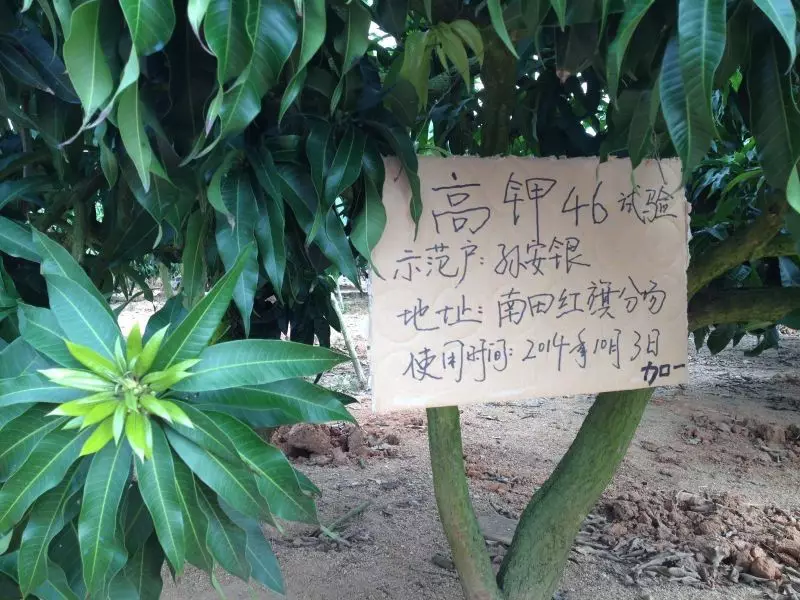 高钾46试验
示范户:孙安银
地址:南田红旗分场
使用时间:2014年10月3日
加口一